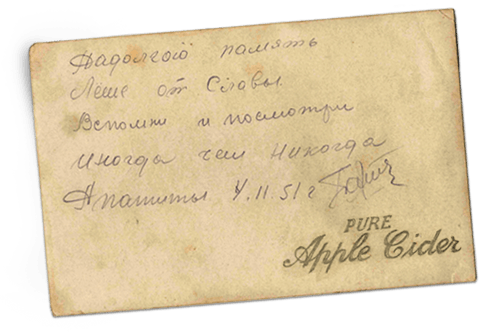 Надолгою память
Леше от Славы.
Вспомни и посмотри
иногда чем никогда
Апатиты 4.11.51г
PURE
Apple Cider